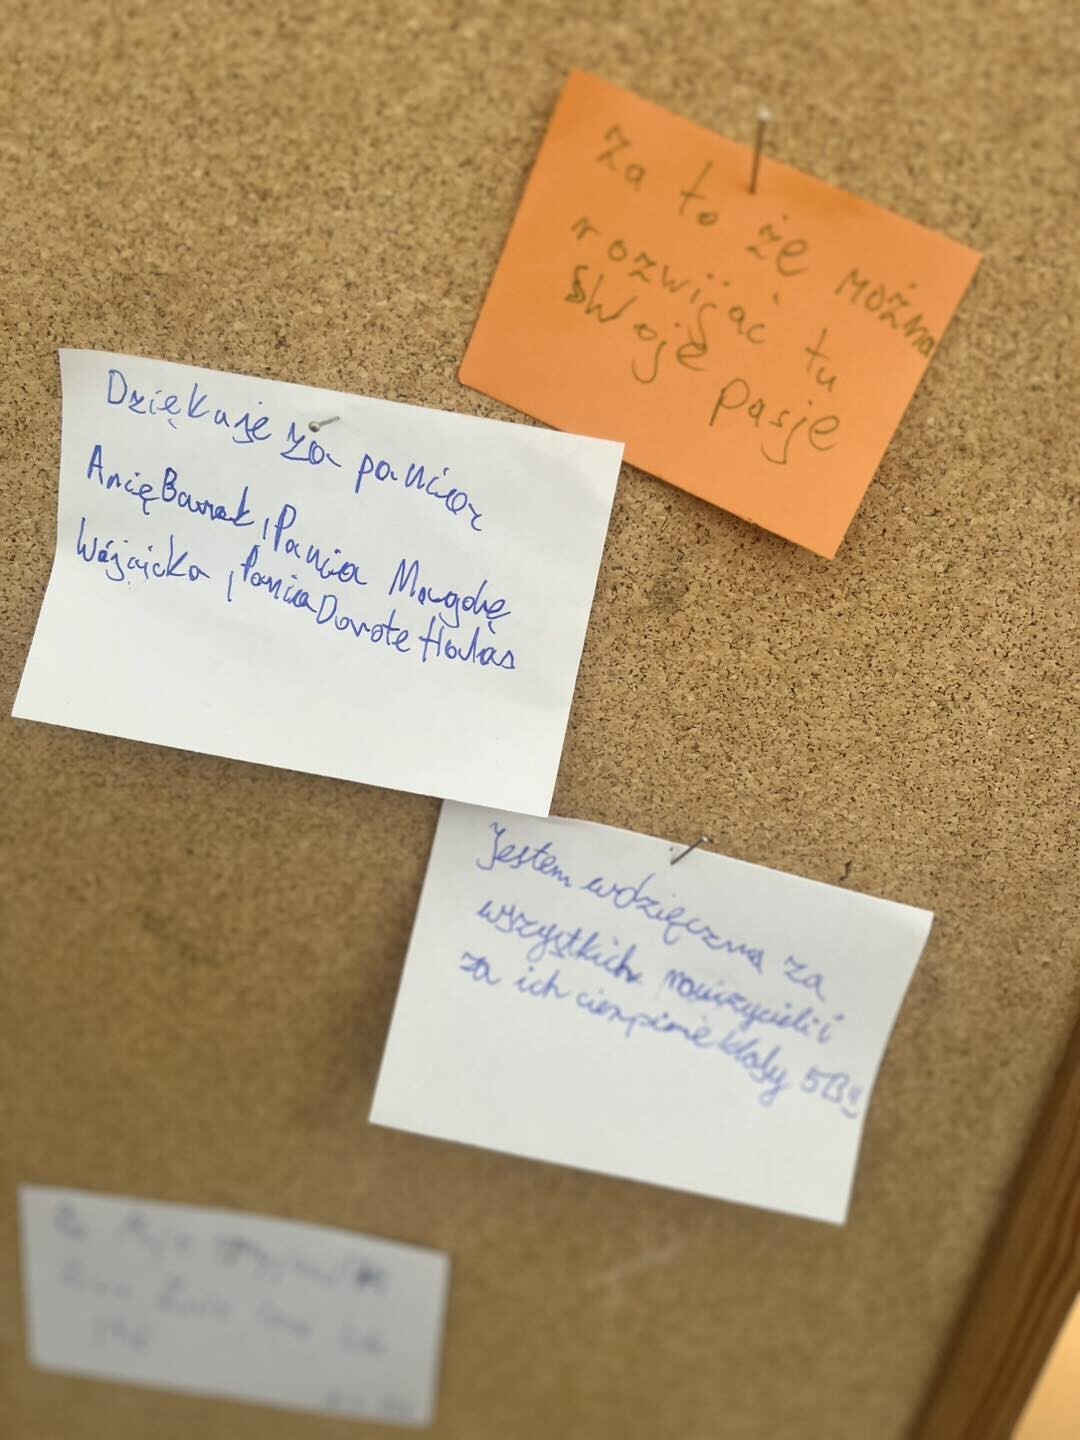 Za to że można
rozwijać tu
swoje pasje
Dziękuję za pania
Anię Banak, Pania Magdę
Wójcicka, Pania Dorote Hałas
Jestem wdzięczna za
wszystkich nauczycieli i
za ich cierpienie klasy 5B!!
Za